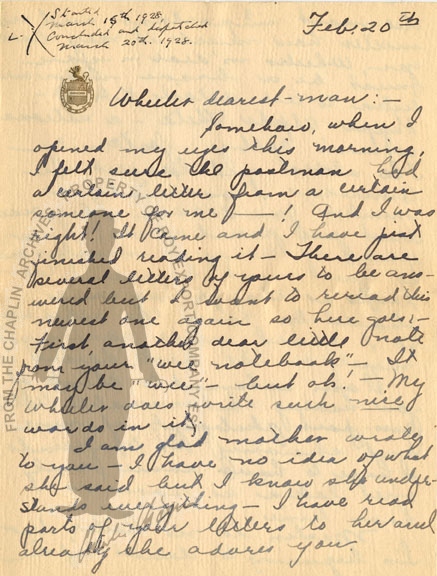 Started
March 15th 1928.
Concluded and dispatched
March 20th. 1928.
Feb. 20th
Wheeler dearest-man:-
Somehow, when I
opened my eyes this morning,
I felt sure the postman had
a certain letter from a certain
someone for me —! And I was
right! It came and I have just
finished reading it - There are
several letters of yours to be ans-
wered but I want to reread this
newest one again so here goes:-
First, another dear little note
from your "wee notebook", It
may be "wee" - but oh! - My
Wheeler does write such nice
words in it,
I am glad mother wrote
to you - I have no idea of what
she said but I know she under-
stands everything - I have read
parts of your letters to her and
already she adores you
FROM THE CHAPLIN ARCHIVES PROPERTY OF ROY EXPORT COMPANY EST